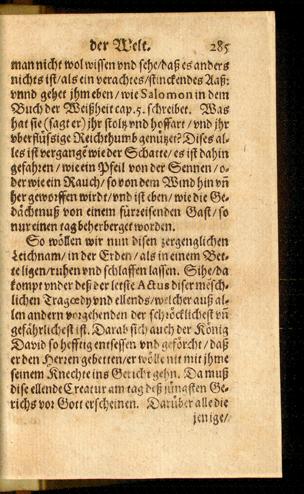 der Welt. 285
man nicht wol wissen vnd sehe/daß es anders
nichts ist/als ein verachtes/stinckendes Aaß:
vnnd gehet jhm eben/wie Salomon in dem
Buch der Weißheit cap. 5. schreibet. Was
hat sie (sagt er) jhr stoltz vnd hoffart/vnd jhr
vberflüssige Reichthumb genützet? Dises al-
les ist vergangē wie der Schatte/es ist dahin
gefahren/wie ein Pfeil von der Sennen/o-
der wie ein Rauch/so von dem Wind hin vñ
her geworffen wirdt/vnd ist eben/wie die Ge-
dächtnuß von einem fürreisenden Gast/so
nur einen tag beherberget worden.
So wöllen wir nun disen zergenglichen
Leichnam/in der Erden/als in einem Bet-
te ligen/ruhen vnd schlaffen lassen. Sihe/da
kompt vnder deß der letste Actus diser mensch-
lichen Tragœdy vnd ellends/welcher auß al-
len andern vorgehenden der schröcklichest vñ
gefährlichest ist. Darab sich auch der König
David so hefftig entsessen vnd geförcht/daß
er den Herren gebetten/er wölle nit mit jhme
seinem Knechte ins Gericht gehn. Da muß
dise ellende Creatur am tag deß jüngsten Ge-
richs vor Gott erscheinen. Darüber alle die
jenige/